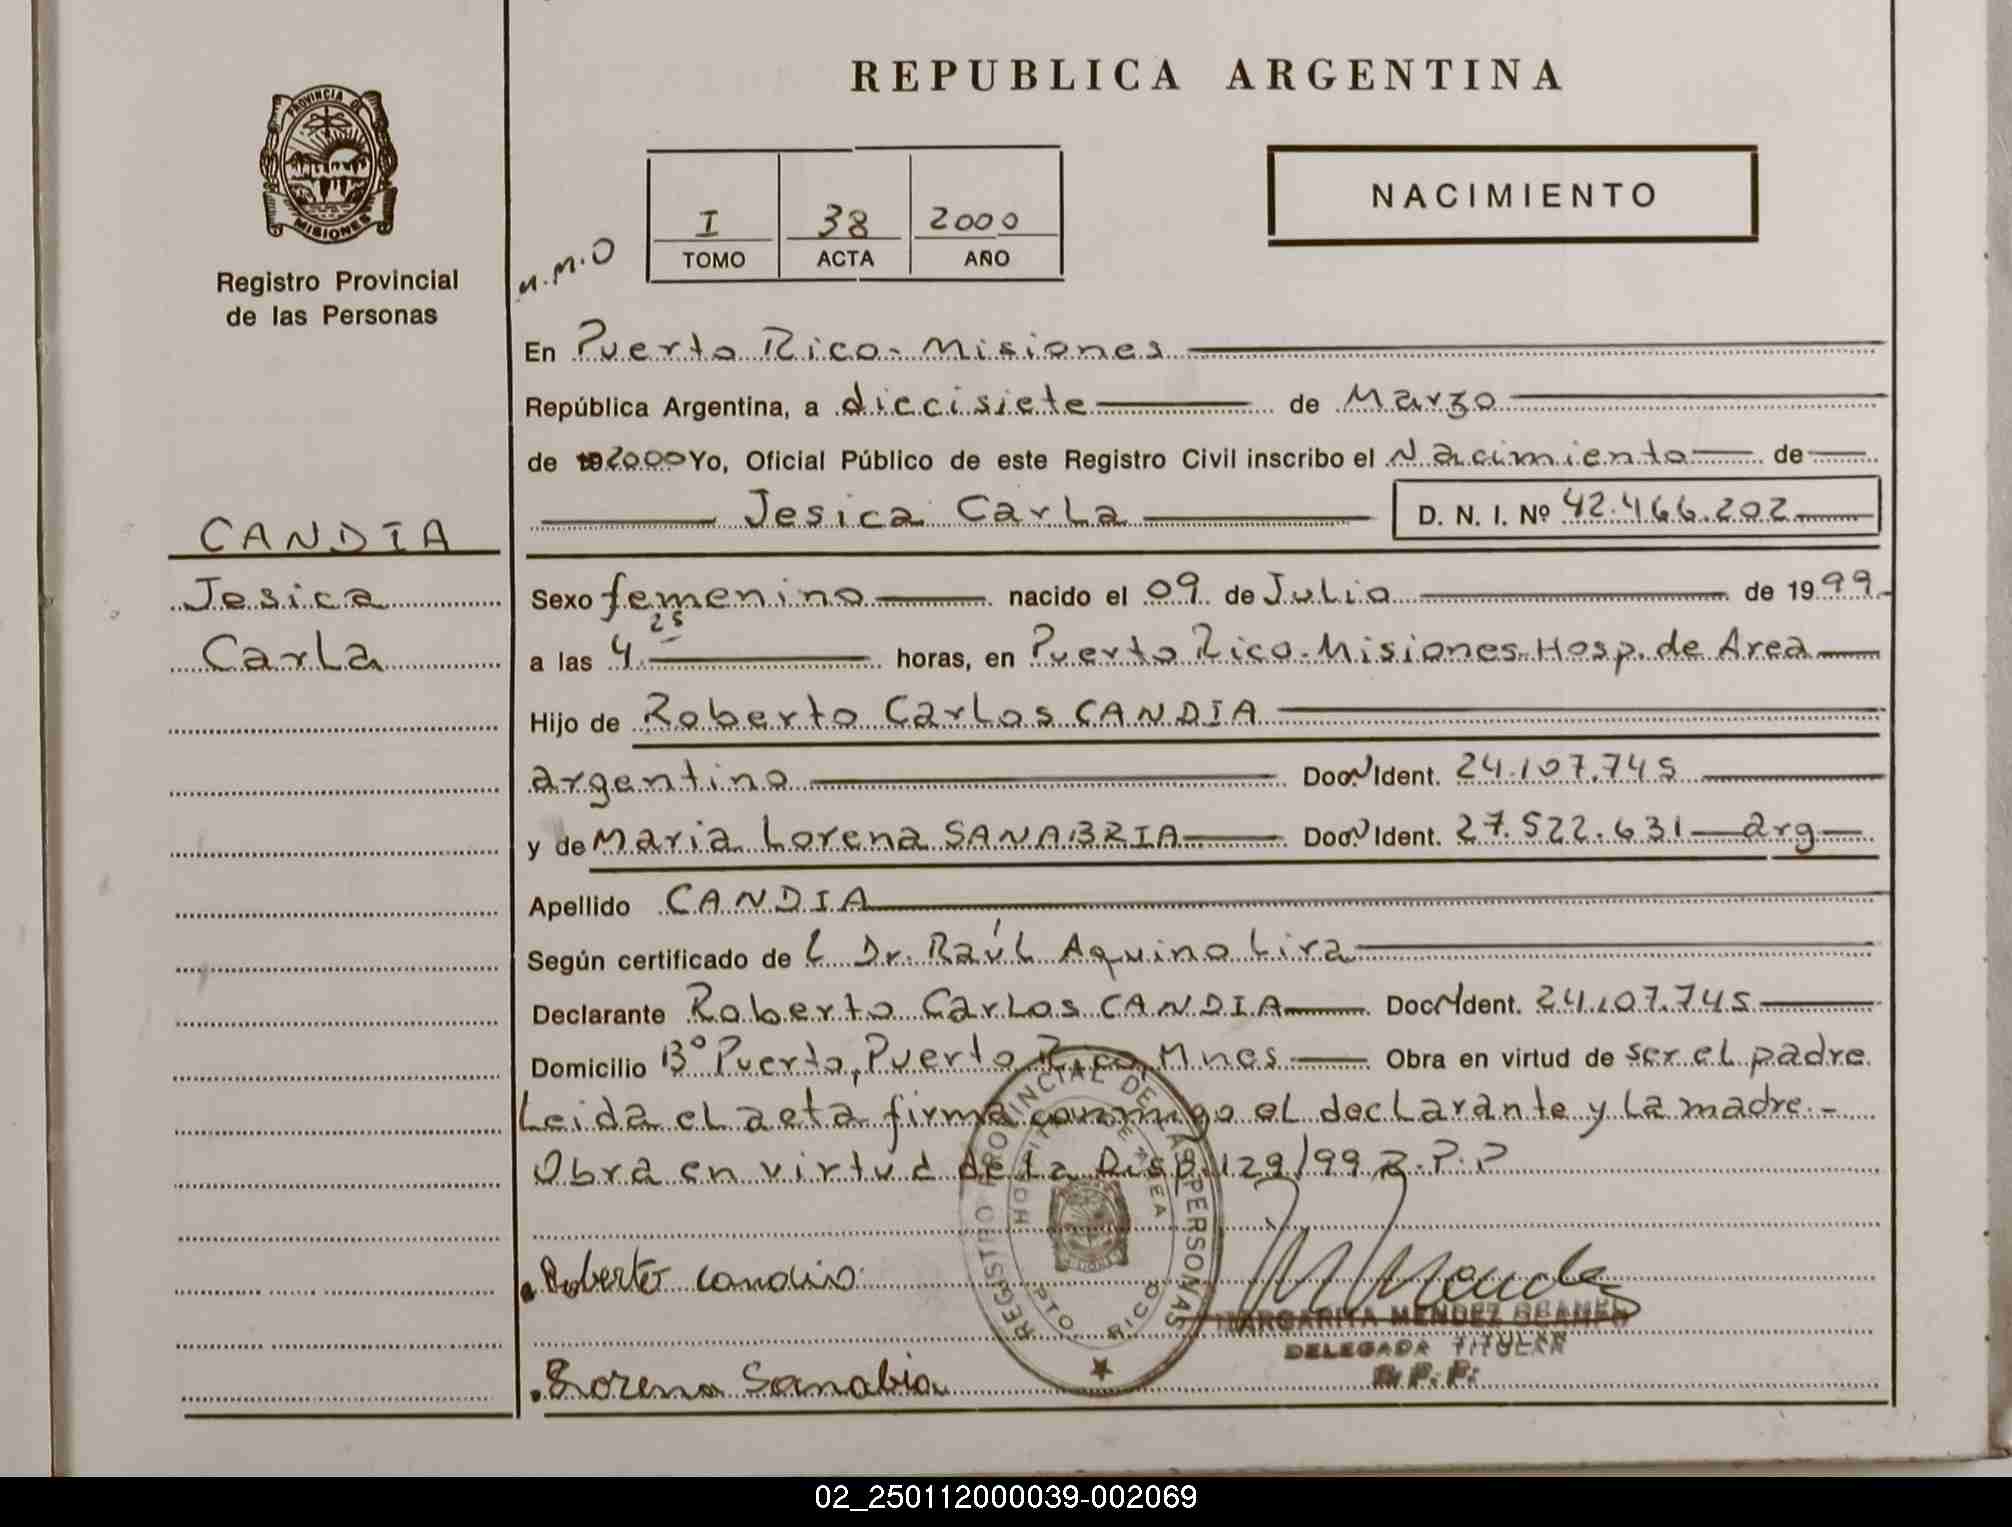 REPUBLICA ARGENTINA
PROVINCIA DE
MISIONES
Registro Provincial
de las Personas
NACIMIENTO
I 38 2000
TOMO ACTA AÑO
M.M.O
En Puerto Rico- Misiones
República Argentina, a diecisiete de Marzo
de 192000 Yo, Oficial Público de este Registro Civil inscribo el Nacimiento de
Jesica Carla D. N. I. Nº 42.466.202
CANDIA
Jesica
Carla
Sexo femenino nacido el 09 de Julio de 1999
a las 4 25 horas, en Puerto Rico-Misiones-Hosp. de Area
Hijo de Roberto Carlos CANDIA
argentino Doc. Ident. 24.107.745
y de Maria Lorena SANABRIA Doc. Ident. 27.522.631 arg
Apellido CANDIA
Según certificado de l Dr. Raúl Aquino Lira
Declarante Roberto Carlos CANDIA Doc. Ident. 24.107.745
Domicilio Bº Puerto, Puerto Rico, Mnes Obra en virtud de ser el padre.
Leida el acta firma conmigo el declarante y la madre.-
Obra en virtud de la Disp. 129/99 R.P.P
REGISTRO PROVINCIAL DE LAS PERSONAS
HOSPITAL DE AREA
PTO. RICO
Roberto Candia
M Mendez
MARGARITA MENDEZ OCAMPO
DELEGADA TITULAR
R.P.P.
Lorena Sanabia
02_250112000039-002069